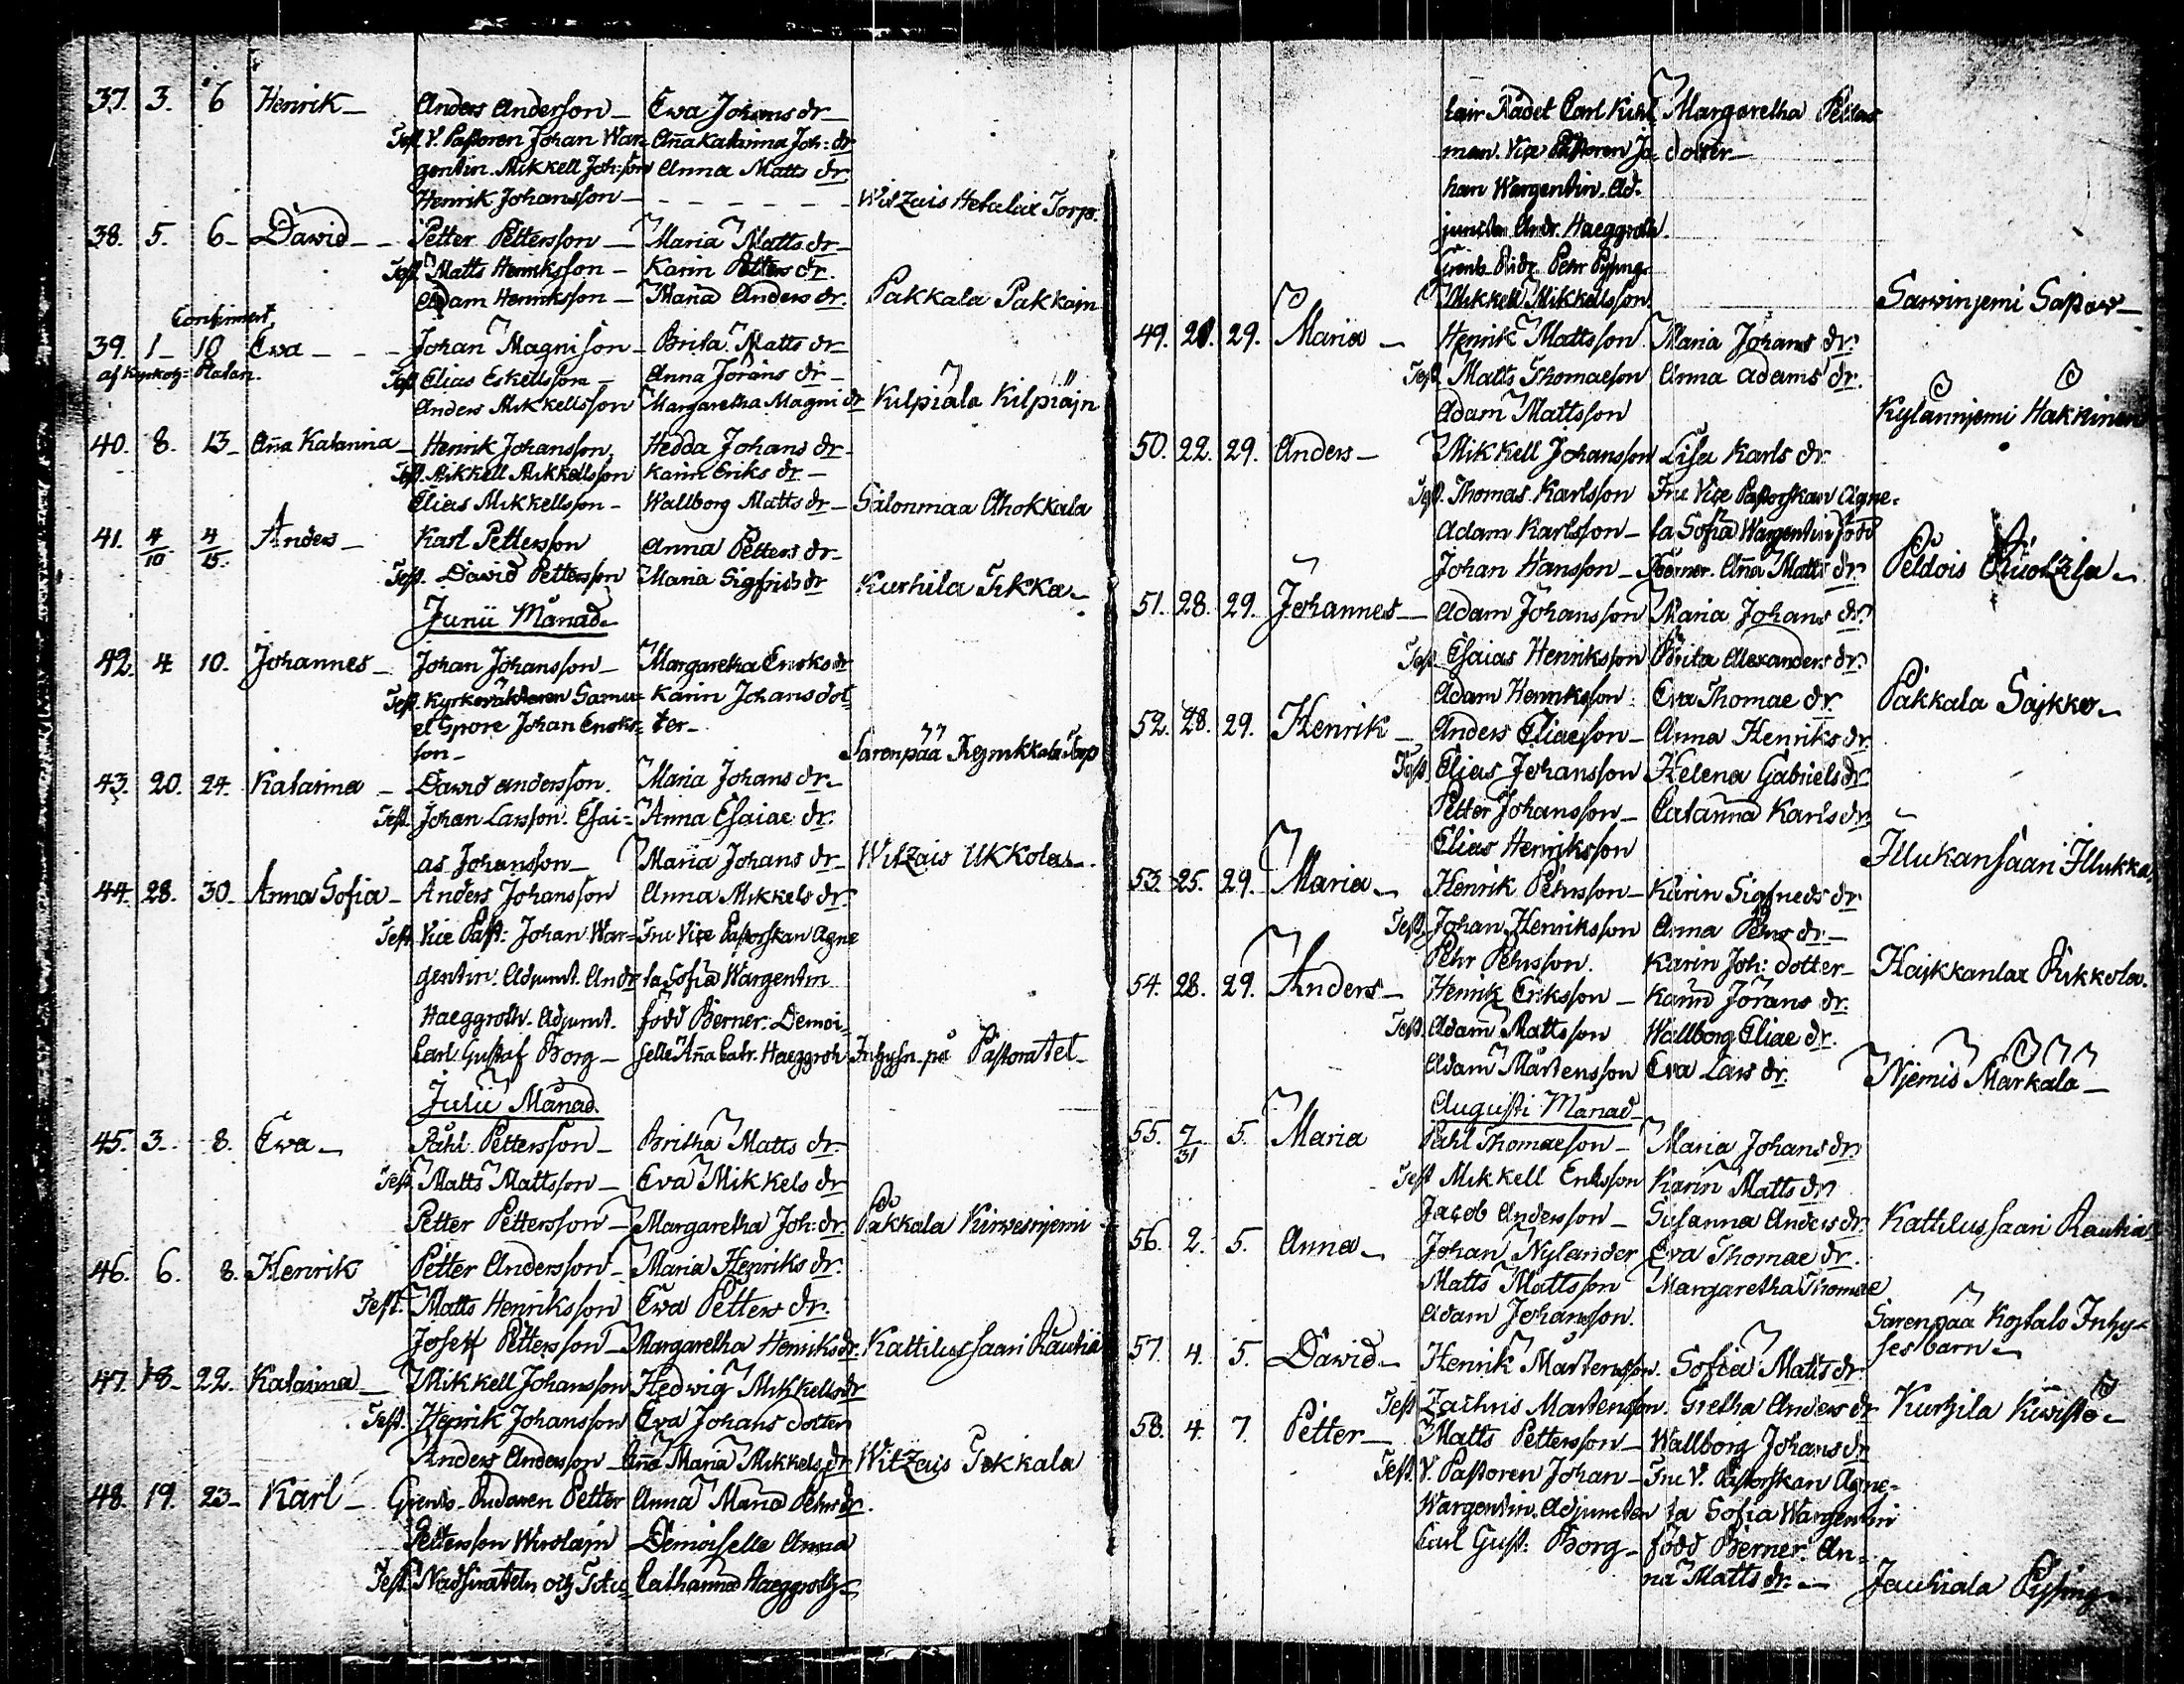 37. 3. 6 Henrik _ Anders Anderson _ Ewa Johans dr _
Test. V. Pastoren Johan War= Aña Katarina Joh: dr
gentin. Mikkell Joh:son Anna Matts dr
Henrik Johansson _ Witzais Hetalax Torp.
38. 5. 6 _ David _ _ Petter Pettersson _ Maria Matts dr _
Test. Matts Henriksson _ Karin Petters dr.
Adam Henriksson _ Maria Anders dr. Pakkala Pakkain
39. 1 _ 10 Ewa _ _ _ Johan Magnison _ Brita Matts dr _
Test. Elias Eskellsson _ Anna Jörans dr _
Anders Mikkellsson Margaretha Magni dr Kilpiala Kilpiäjn
40. 8. 13 _ Aña Katarina _ Henrik Johansson Hedda Johans dr _
Test. Mikkell Mikkellsson Karin Eriks dr _
Elias Mikkellsson _ Wallborg Matts dr _ Salonmaa Ahokkala
41. 4/10. 4/15. Anders _ Karl Pettersson Anna Petters dr _
Test. David Pettersson Maria Sigfrids dr Kurhila Sikka _
Junii Månad _
42. 4 10. Johannes _ Johan Johansson _ Margaretha Eriks dr
Test. Kyrkoväktaren Samu= Karin Johans dot
el Spore Johan Eriks= ter _
son _ Sarenpää Torp
43. 20. 24. Katarina _ David andersson. Maria Johans dr _
Test. Johan Larsson. Esai= Anna Esaiae dr.
as Johansson _ Maria Johans dr _ Witzais Ukkola _
44. 28. 30 _ Anna Sofia _ Anders Johansson Anna Mikkels dr.
Test. Vice Past: Johan War= Fru Vice Pastorskan Agne
gentin. Adjunct. Andr ta Sofia Wargentin
Haeggroth. Adjunct. född Berner. Demoi=
Carl Gustaf Borg _ selle Aña Catr. Haeggroth Inhysn. på Pastoratet _
Julii Månad.
45. 3 _ 8. Ewa _ Påhl Pettersson _ Britha Matts dr.
Test. Matts Mattsson _ Eva Mikkels dr
Petter Pettersson _ Margaretha Joh: dr. Pakkala Kirvesnjemi
46. 6. 8. Henrik Petter Andersson _ Maria Henriks dr.
Test. Matts Henriksson Ewa Petters dr.
Josef Pettersson _ Margaretha Henriks dr. Kattilussaari Rauhia
47. 18 _ 22. Katarina _ Mikkell Johansson Hedwig Mikkells dr
Test. Henrik Johansson Eva Johans dotter
Anders Andersson _ Aña Maria Mikkels dr Witzais Tokkala
48. 19. 23 _ Karl _ Petter Anna Maria Pehrs dr.
Pettersson Demoiselle Anna
Test. Catharina Haeggroth _
Rådet Carl Kihl Margaretha Petters
man. Vice Pastoren Jo= dotter _
han Wargentin. Ad=
juncten Andr. Haeggroth.
Pehr Pysing
Mikkell Mikkellsson Sarvinjemi _
49. 21. 29. Maria _ Henrik Mattsson Maria Johans dr.
Test. Matts Thomaeson Anna Adams dr.
Adam Mattsson Kylännjemi Hakkinen
50. 22. 29. Anders _ Mikkell Johansson Lisa Karls dr.
Test. Thomas Karlsson Fru Vice Pastorskan Agne=
Adam Karlsson _ ta Sofia Wargentin född
Johan Hansson _ Berner. Aña Matts dr. Peldois _
51. 28. 29. Johannes _ Adam Johansson Maria Johans dr.
Test. Esaias Henriksson Brita Alexanders dr.
Adam Henriksson. Eva Thomae dr. Pakkala Sajkko _
52. 28. 29. Henrik _ Anders Eliaeson _ Anna Henriks dr.
Test. Elias Johansson Helena Gabriels dr
Petter Johansson _ Catarina Karls dr
Elias Henriksson Illukansaari Illukka
53. 25. 29. Maria _ Henrik Pehrsson _ Karin Sigfrieds dr
Test. Johan Henriksson Anna Pehrs dr. _
Pehr Pehrsson. Karin Joh: dotter _ Hajkkanlax Rikkola.
54. 28. 29. Anders _ Henrik Eriksson _ Karin Jörans dr.
Test. Adam Mattsson Wallborg Eliae dr.
Adam Mårtensson Eva Lars dr. Njemis Markala _
Augusti Månad _
55. 7/31 5. Maria Påhl Thomaeson _ Maria Johans dr.
Test Mikkell Eriksson Karin Matts dr.
Jacob Andersson _ Susanna Anders dr. Kattilussaari Rauhia
56. 2. 5. Anna _ Johan Nylander Eva Thomae dr.
Matts Mattsson Margaretha Thomae
Adam Johansson. Sarenpää Inhy=
ses barn _
57. 4. 5. David _ Henrik Mårtensson. Sofia Matts dr.
Test Zachris Martensson. Gretha Anders dr Kurhila Kivistö _
58. 4. 7. Petter _ Matts Pettersson _ Wallborg Johans dr
Test. V. Pastoren Johan _ Fru V. Pastorskan Agne=
Wargentin. Adjuncten ta Sofia Wargentin
Carl Gust: Borg _ född Berner. An=
na Matts dr. _ Jauhiala Pysing _